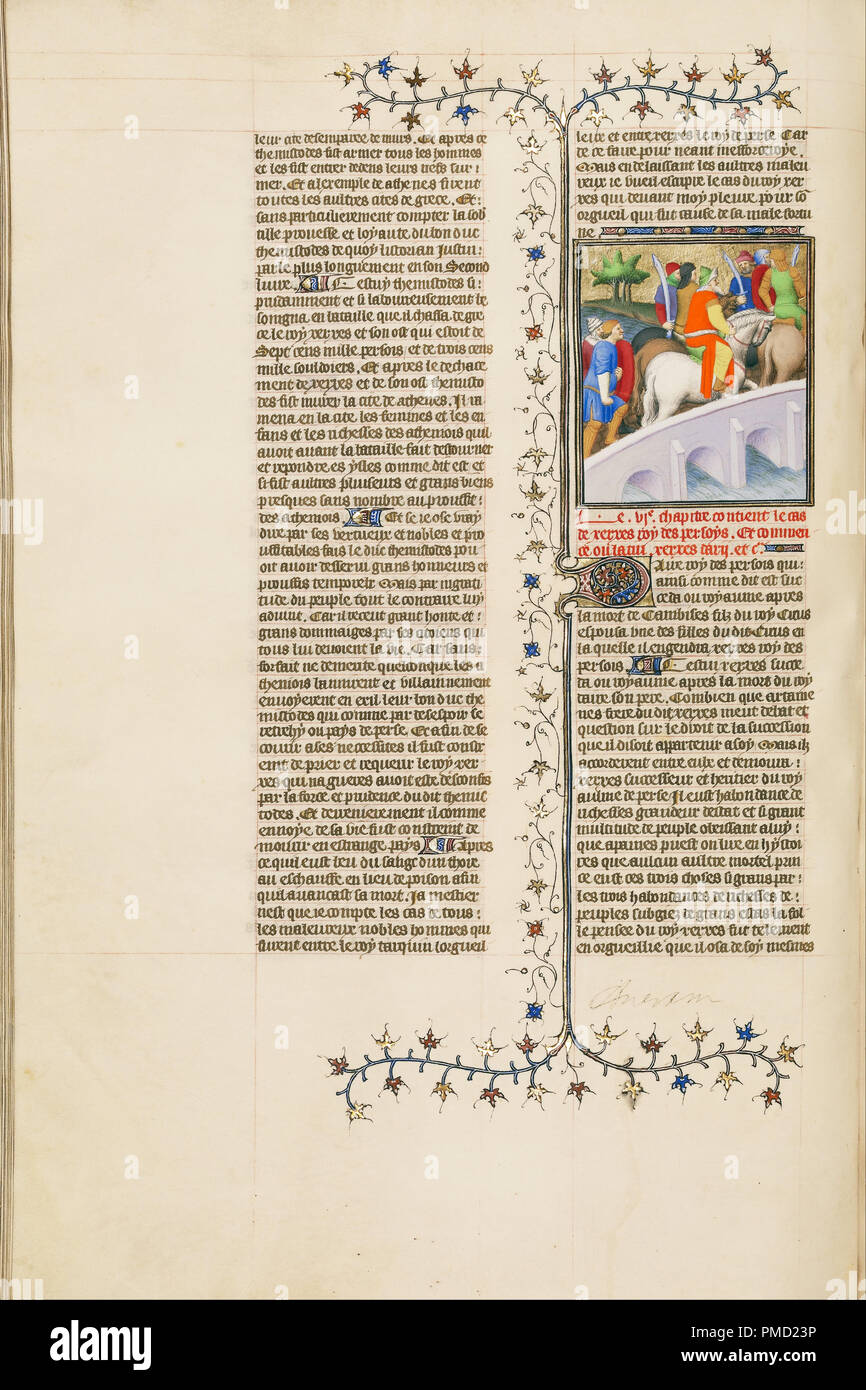 leur cite desemparee de murs. Et apres ce
themistodes fist armer tous les hommes
et les fist entrer dedens leurs nefs sur
mer. Et a lexemple de athenes firent
toutes les aultres cites de grece. Et
sans particulierement compter la sob
tille prouesse et loyaute du bon duc
themistodes de quoy listorian Justin
parle plus longuement en son Second
livre. Cestuy themistodes si
prudamment et si laboureusement be
songna en bataille que il chassa de gre
ce le roy xerxes et son ost qui estoit de
Sept cens mille persois et de trois cens
mille souldoiers. Et apres le dechace
ment de xerxes et de son ost themisto
des fist murer la cite de athenes. Il ra
mena en la cite les femmes et les en
fans et les richesses des atheniois quil
avoit avant la bataille fait destourner
et repondre es ysles comme dit est et
si fist aultres pluseurs et grans biens
presques sans nombre au prouffit
des atheniois. Et se ie ose vray
dire par ses vertueux et nobles et prou
ffitables fais le duc themistodes pou
oit avoir desservi grans honneurs et
prouffis temporelz Mais par ingrati
tude du peuple tout le contraire luy
advint. Car il receut grant honte et
grans dommaiges par ses citoiens qui
tous lui devoient la vie. Car sans
forfait ne demerite quelconque les a
theniois lannirent et villainnement
envoyerent en exil leur bon duc the
mistodes qui comme par desespoir se
retrehy ou pays de perse. Et afin de se
courir a ses necessites il fust constr
eint de prier et requerir le roy xer
xes qui nagueres avoit este desconfis
par la force et prudence du dit themis
todes. Et derrenierement il comme
ennoye de sa vie fust constreint de
mourir en estrange pays Apres
ce quil eust beu du sang dun thore
au eschauffe en lieu de poison afin
quil avancast sa mort. Ja mestier
nest que ie compte les cas de tous
les maleureux nobles hommes qui
furent entre le roy tarquin lorgueil
leux et entre xerxes le roy de perse Car
de ce faire pour neant mefforceroye.
Mais en delaissant les aultres maleu
reux ie vueil escripre le cas du roy xer
xes qui devant moy pleure pour so
orgueil qui fut cause de sa male fortu
ne
Le .vie. chapitre contient le cas
de xerxes roy des persoys. Et commen
ce ou latin xerxes darii. et c.
Daire roy des persois qui
ainsi comme dit est suc
ceda ou royaume apres
la mort de Cambises filz du roy Cirus
espousa une des filles du dit Cirus en
la quelle il engendra xerxes roy des
persois. Cestui xerxes succe
da ou royaume apres la mort du roy
daire son pere. Combien que artame
nes frere du dit xerxes meut debat et
question sur le droit de la succession
que il disoit appartenir a soy Mais ilz
accorderent entre eulx et demoura
xerxes successeur et heritier du roy
aulme de perse. Il eust habondance de
richesses grandeur destat et si grant
multitude de peuple obeissant a luy
que a paines puest on lire en hystoi
res que aulcun aultre mortel prin
ce eust ces trois choses si grans par
les trois habondances de richesses de
peuples subgiez de grans estas la fol
le pensee du roy xerxes fut tellement
en orgueillie que il osa de soy mesmes
alamy
www.alamy.com
Image ID: PMD23P